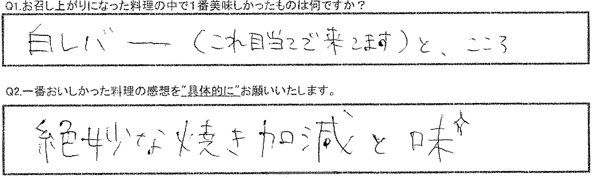 Q1.お召し上がりになった料理の中で1番美味しかったものは何ですか?
白レバー(これ目当てで来てます)と、こころ
Q2.一番おいしかった料理の感想を"具体的に"お願いいたします。
絶妙な焼き加減と味☆